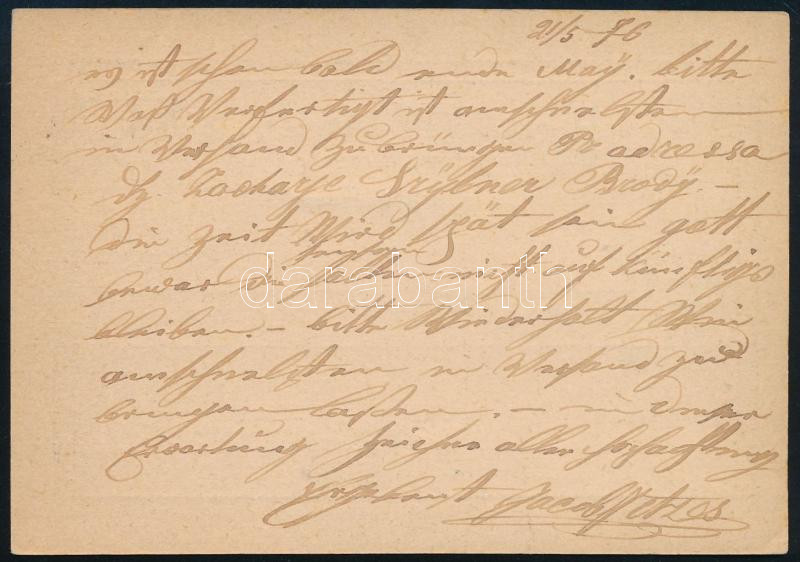 21/5 76
es ist schon bald ende May. bitte
Waß Verfertigt ist amschnelsten
in Versand zu bringen Pr adressa
Zacharje Srybner Brody. —
die zeit Wird spät sein gott
bewar die sachen nicht auf künftigs
bleiben. — bitte Wiederholt
amschnelsten in Versand zu
bringen laßen. — in dieser
Erwartung zeichne aller hochachtung
Ergebenst Jacob
darabanth